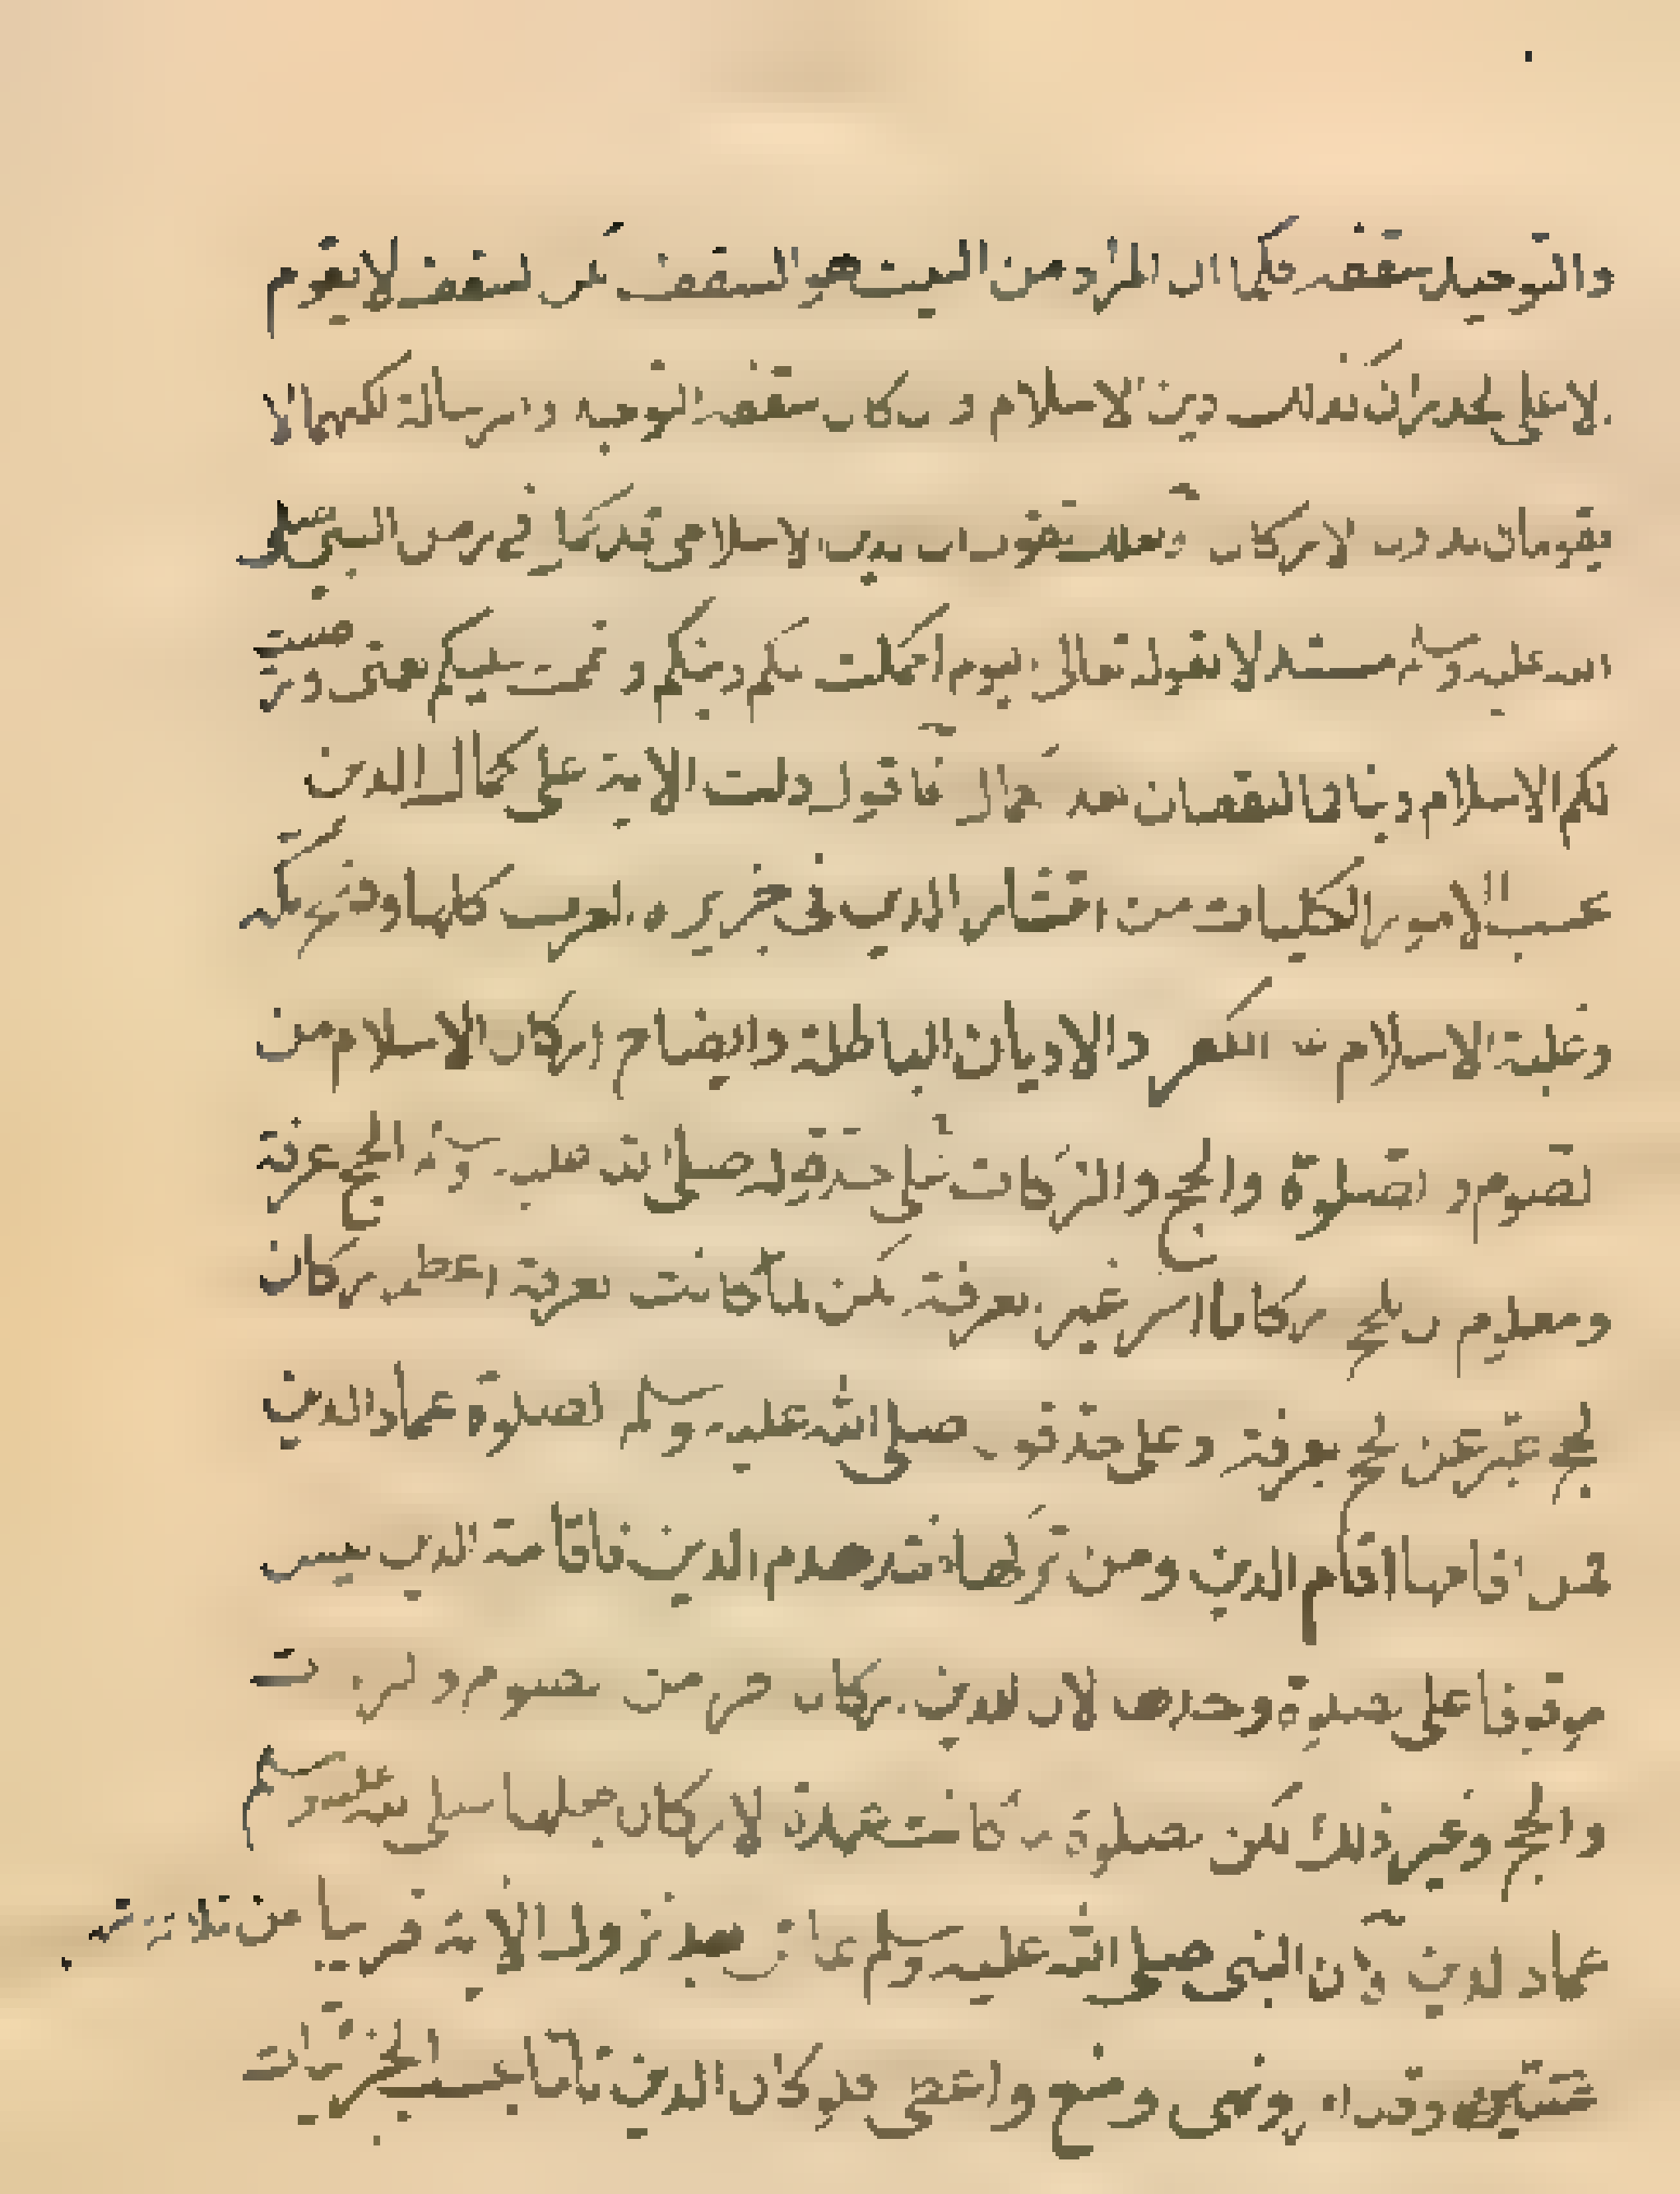 والتوحيد سقفه فكما ان المراد من البيت هو السقف لكن السقف لا يقوم
الا على الجدران كذلك دين الاسلام و ان كان سقفه التوحيد والرسالة لكنهما لا
يقومان بدون الاركان ولعلك تقول ان دين الاسلام قد كمل في زمن النبي صلى
الله عليه وسلم مستدلا بقوله تعالى اليوم اكملت لكم دينكم و اتممت عليكم نعمتى ورضيت
لكم الاسلام دينا فما النقصان بعد الكمال فاقول دلت الاية على كمال الدين
بحسب الامور الكليات من انتشار الدين فى جزيرة العرب كلها وفتح مكه
وغلبة الاسلام على الكفر والاديان الباطلة وايضاح اركان الاسلام من
الصوم و الصلوة والحج والزكات على حد قوله صلى الله عليه وسلم الحج عرفة
ومعلوم ان للحج اركانا اخر غير عرفة لكن لما كانت عرفة اعظم اركان
الحج عبر عن الحج بعرفة وعلى حد قوله صلى الله عليه وسلم الصلوة عماد الدين
فمن اقامها اقام الدين ومن تركها فقد هدم الدين فاقامة الدين ليس
موقوفا على الصلوة وحدها لان للدين اركان اخر من الصوم والزكات
والحج وغير ذلك لكن الصلوة لما كانت عمدة الاركان جعلها صلى الله عليه وسلم
عماد الدين و ان النبى صلى الله عليه وسلم عاش بعد نزول الاية قريبا من ثلاثة
وقد امر ونهى ومنع واعطى فلو كان الدين تاما بحسب الجزئيات